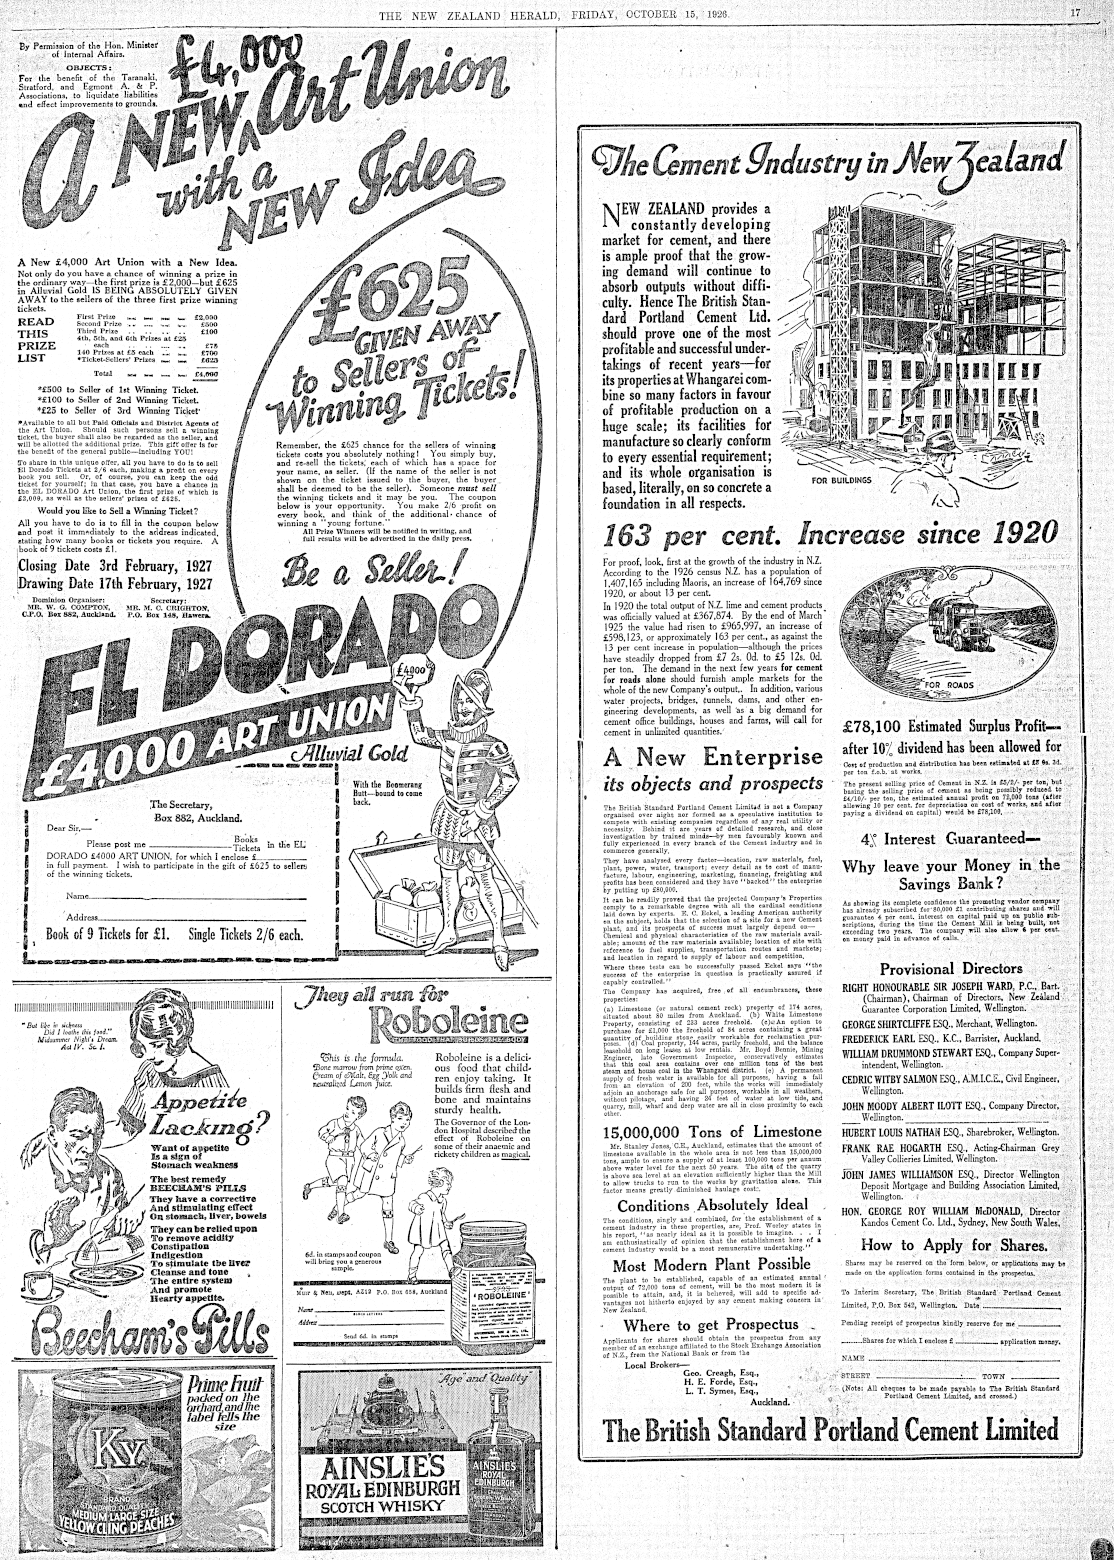 THE NEW ZEALAND HERALD, FRIDAY, OCTOBER 15, 1926.
17
By Permission of the Hon. Minister
of Internal Affairs.
OBJECTS:
For the benefit of the Taranaki,
Stratford, and Egmont A. & P.
Associations, to liquidate liabilities
and effect improvements to grounds.
A NEW £4,000 Art Union
with a
NEW Idea
A New £4,000 Art Union with a New Idea.
Not only do you have a chance of winning a prize in
the ordinary way—the first prize is £2,000—but £625
in Alluvial Gold IS BEING ABSOLUTELY GIVEN
AWAY to the sellers of the three first prize winning
tickets.
READ
THIS
PRIZE
LIST
First Prize £2,000
Second Prize £500
Third Prize £100
4th, 5th, and 6th Prizes at £25
each £75
140 Prizes at £5 each £700
*Ticket-Sellers' Prizes £625
Total £4,000
*£500 to Seller of 1st Winning Ticket.
*£100 to Seller of 2nd Winning Ticket.
*£25 to Seller of 3rd Winning Ticket.
*Available to all but Paid Officials and District Agents of
the Art Union. Should such persons sell a winning
ticket, the buyer shall also be regarded as the seller, and
will be allotted the additional prize. This gift offer is for
the benefit of the general public—including YOU!
To share in this unique offer, all you have to do is to sell
El Dorado Tickets at 2/6 each, making a profit on every
book you sell. Or, of course, you can keep the odd
ticket for yourself; in that case, you have a chance in
the EL DORADO Art Union, the first prize of which is
£2,000, as well as the sellers' prizes of £625.
Would you like to Sell a Winning Ticket?
All you have to do is to fill in the coupon below
and post it immediately to the address indicated,
stating how many books or tickets you require. A
book of 9 tickets costs £1.
Closing Date 3rd February, 1927
Drawing Date 17th February, 1927
Dominion Organiser:
MR. W. G. COMPTON,
C.P.O. Box 882, Auckland.
Secretary:
MR. M. C. CRIGHTON,
P.O. Box 148, Hawera.
£625
GIVEN AWAY
to Sellers of
Winning Tickets!
Remember, the £625 chance for the sellers of winning
tickets costs you absolutely nothing! You simply buy,
and re-sell the tickets, each of which has a space for
your name, as seller. (If the name of the seller is not
shown on the ticket issued to the buyer, the buyer
shall be deemed to be the seller). Someone must sell
the winning tickets and it may be you. The coupon
below is your opportunity. You make 2/6 profit on
every book, and think of the additional chance of
winning a "young fortune."
All Prize Winners will be notified in writing, and
full results will be advertised in the daily press.
Be a Seller!
EL DORADO
£4000
£4,000 ART UNION
Alluvial Gold
With the Boomerang
Butt—bound to come
back.
The Secretary,
Box 882, Auckland.
Dear Sir,—
Please post me Books Tickets in the EL
DORADO £4000 ART UNION, for which I enclose £
in full payment. I wish to participate in the gift of £625 to sellers
of the winning tickets.
Name
Address
Book of 9 Tickets for £1. Single Tickets 2/6 each.
"But like in sickness
Did I loathe this food."
Midsummer Night's Dream.
Act IV. Sc. I.
Appetite
Lacking?
Want of appetite
Is a sign of
Stomach weakness
The best remedy
BEECHAM'S PILLS
They have a corrective
And stimulating effect
On stomach, liver, bowels
They can be relied upon
To remove acidity
Constipation
Indigestion
To stimulate the liver
Cleanse and tone
The entire system
And promote
Hearty appetite.
Beecham's Pills
They all run for
Roboleine
THE FOOD THAT BUILDS THE BODY
This is the formula.
Bone marrow from prime oxen.
Cream of Malt, Egg Yolk and
neutralized Lemon juice.
Roboleine is a delici-
ous food that child-
ren enjoy taking. It
builds firm flesh and
bone and maintains
sturdy health.
The Governor of the Lon-
don Hospital described the
effect of Roboleine on
some of their anaemic and
rickety children as magical.
6d. in stamps and coupon
will bring you a generous
sample.
Muir & Neil, Dept. AZ19 P.O. Box 658, Auckland
Name
BLOCK LETTERS
Address
Send 6d. in stamps
"ROBOLEINE"
Prime Fruit
packed on the
orchard, and the
label tells the
size
Ky.
BRAND
STANDARD QUALITY
MEDIUM LARGE SIZE
YELLOW CLING PEACHES
"Age and Quality"
AINSLIE'S
ROYAL EDINBURGH
SCOTCH WHISKY
AINSLIE'S
ROYAL
EDINBURGH
The Cement Industry in New Zealand
NEW ZEALAND provides a
constantly developing
market for cement, and there
is ample proof that the grow-
ing demand will continue to
absorb outputs without diffi-
culty. Hence The British Stan-
dard Portland Cement Ltd.
should prove one of the most
profitable and successful under-
takings of recent years—for
its properties at Whangarei com-
bine so many factors in favour
of profitable production on a
huge scale; its facilities for
manufacture so clearly conform
to every essential requirement;
and its whole organisation is
based, literally, on so concrete a
foundation in all respects.
FOR BUILDINGS
163 per cent. Increase since 1920
For proof, look, first at the growth of the industry in N.Z.
According to the 1926 census N.Z. has a population of
1,407,165 including Maoris, an increase of 164,769 since
1920, or about 13 per cent.
In 1920 the total output of N.Z. lime and cement products
was officially valued at £367,874. By the end of March
1925 the value had risen to £965,997, an increase of
£598,123, or approximately 163 per cent., as against the
13 per cent increase in population—although the prices
have steadily dropped from £7 2s. 0d. to £5 12s. 0d.
per ton. The demand in the next few years for cement
for roads alone should furnish ample markets for the
whole of the new Company's output. In addition, various
water projects, bridges, tunnels, dams, and other en-
gineering developments, as well as a big demand for
cement office buildings, houses and farms, will call for
cement in unlimited quantities.
FOR ROADS
A New Enterprise
its objects and prospects
The British Standard Portland Cement Limited is not a Company
organised over night nor formed as a speculative institution to
compete with existing companies regardless of any real utility or
necessity. Behind it are years of detailed research, and close
investigation by trained minds—by men favourably known and
fully experienced in every branch of the Cement industry and in
commerce generally.
They have analysed every factor—location, raw materials, fuel,
plant, power, water, transport; every detail as to cost of manu-
facture, labour, engineering, marketing, financing, freighting and
profits has been considered and they have "backed" the enterprise
by putting up £80,000.
It can be readily proved that the projected Company's Properties
comply to a remarkable degree with all the cardinal conditions
laid down by experts. E. C. Eckel, a leading American authority
on the subject, holds that the selection of a site for a new Cement
plant, and its prospects of success must largely depend on—
Chemical and physical characteristics of the raw materials avail-
able; amount of the raw materials available; location of site with
reference to fuel supplies, transportation routes and markets;
and location in regard to supply of labour and competition.
Where these tests can be successfully passed Eckel says "the
success of the enterprise in question is practically assured if
capably controlled."
The Company has acquired, free of all encumbrances, these
properties:
(a) Limestone (or natural cement rock) property of 174 acres,
situated about 80 miles from Auckland. (b) White Limestone
Property, consisting of 233 acres freehold. (c) An option to
purchase for £1,000 the freehold of 84 acres containing a great
quantity of building stone easily workable for reclamation pur-
poses. (d) Coal property, 144 acres, partly freehold, and the balance
leasehold on long leases at low rentals. Mr. Boyd Bennie, Mining
Engineer, late Government Inspector, conservatively estimates
that this coal area contains over one million tons of the best
steam and house coal in the Whangarei district. (e) A permanent
supply of fresh water is available for all purposes, having a fall
from an elevation of 200 feet, while the works will immediately
adjoin an anchorage safe for all purposes, workable in all weathers,
without pilotage, and having 24 feet of water at low tide, and
quarry, mill, wharf and deep water are all in close proximity to each
other.
15,000,000 Tons of Limestone
Mr. Stanley Jones, C.E., Auckland, estimates that the amount of
limestone available in the whole area is not less than 15,000,000
tons, ample to ensure a supply of at least 100,000 tons per annum
above water level for the next 50 years. The site of the quarry
is above sea level at an elevation sufficiently higher than the Mill
to allow trucks to run to the works by gravitation alone. This
factor means greatly diminished haulage cost.
Conditions Absolutely Ideal
The conditions, singly and combined, for the establishment of a
cement industry in these properties, are, Prof. Worley states in
his report, "as nearly ideal as it is possible to imagine. . . . I
am enthusiastically of opinion that the establishment here of a
cement industry would be a most remunerative undertaking."
Most Modern Plant Possible
The plant to be established, capable of an estimated annual
output of 72,000 tons of cement, will be the most modern it is
possible to attain, and, it is believed, will add to specific ad-
vantages not hitherto enjoyed by any cement making concern in
New Zealand.
Where to get Prospectus
Applicants for shares should obtain the prospectus from any
member of an exchange affiliated to the Stock Exchange Association
of N.Z., from the National Bank or from the
Local Brokers—
Geo. Creagh, Esq.,
H. E. Forde, Esq.,
L. T. Symes, Esq.,
Auckland.
£78,100 Estimated Surplus Profit—
after 10% dividend has been allowed for
Cost of production and distribution has been estimated at £3 9s. 3d.
per ton f.o.b. at works.
The present selling price of Cement in N.Z. is £5/2/- per ton, but
basing the selling price of cement as being possibly reduced to
£4/10/- per ton, the estimated annual profit on 72,000 tons (after
allowing 10 per cent. for depreciation on cost of works, and after
paying a dividend on capital) would be £78,100.
4% Interest Guaranteed—
Why leave your Money in the
Savings Bank?
As showing its complete confidence the promoting vendor company
has already subscribed for 80,000 £1 contributing shares and will
guarantee 4 per cent. interest on capital paid up on public sub-
scriptions, during the time the Cement Mill is being built, not
exceeding two years. The company will also allow 6 per cent.
on money paid in advance of calls.
Provisional Directors
RIGHT HONOURABLE SIR JOSEPH WARD, P.C., Bart.
(Chairman), Chairman of Directors, New Zealand
Guarantee Corporation Limited, Wellington.
GEORGE SHIRTCLIFFE ESQ., Merchant, Wellington.
FREDERICK EARL ESQ., K.C., Barrister, Auckland.
WILLIAM DRUMMOND STEWART ESQ., Company Super-
intendent, Wellington.
CEDRIC WITBY SALMON ESQ., A.M.I.C.E., Civil Engineer,
Wellington.
JOHN MOODY ALBERT ILOTT ESQ., Company Director,
Wellington.
HUBERT LOUIS NATHAN ESQ., Sharebroker, Wellington.
FRANK RAE HOGARTH ESQ., Acting-Chairman Grey
Valley Collieries Limited, Wellington.
JOHN JAMES WILLIAMSON ESQ., Director Wellington
Deposit Mortgage and Building Association Limited,
Wellington.
HON. GEORGE ROY WILLIAM McDONALD, Director
Kandos Cement Co. Ltd., Sydney, New South Wales,
How to Apply for Shares.
Shares may be reserved on the form below, or applications may be
made on the application forms contained in the prospectus.
To Interim Secretary, The British Standard Portland Cement
Limited, P.O. Box 542, Wellington. Date
Pending receipt of prospectus kindly reserve for me
Shares for which I enclose £ application money.
NAME
STREET TOWN
(Note: All cheques to be made payable to The British Standard
Portland Cement Limited, and crossed.)
The British Standard Portland Cement Limited